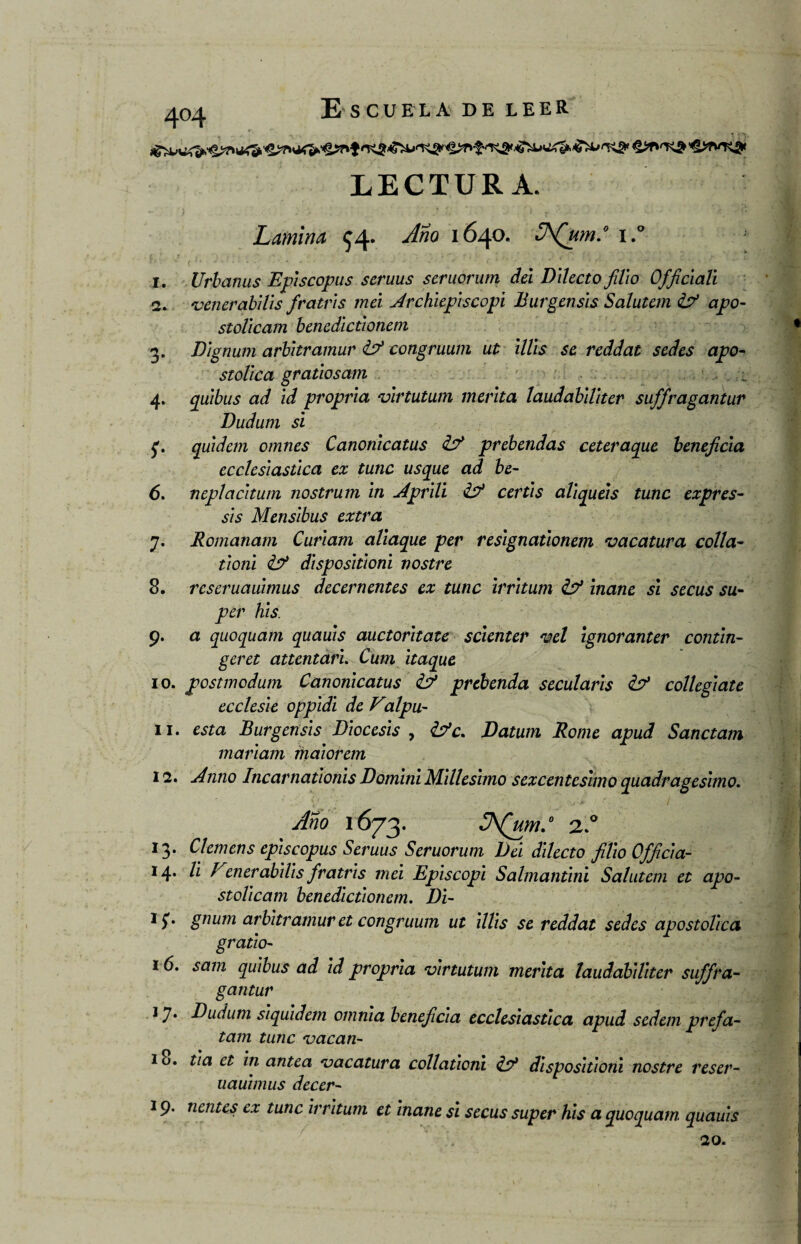 404 ESCUELA DE LEER
LECTURA.
Lamina 54. Año 1640. Num.º 1.º
1. Urbanus Episcopus seruus seruorum dei Dilecto filio Officiali
2. venerabilis fratris mei Archiepiscopi Burgensis Salutem & apo-
stolicam benedictionem
3. Dignum arbitramur & congruum ut illis se reddat sedes apo-
stolica gratiosam
4. quibus ad id propria virtutum merita laudabiliter suffragantur
Dudum si
5. quidem omnes Canonicatus & prebendas ceteraque beneficia
ecclesiastica ex tunc usque ad be-
6. neplacitum nostrum in Aprili & certis aliqueis tunc expres-
sis Mensibus extra
7. Romanam Curiam aliaque per resignationem vacatura colla-
tioni & dispositioni nostre
8. reseruauimus decernentes ex tunc irritum & inane si secus su-
per his.
9. a quoquam quauis auctoritate scienter vel ignoranter contin-
geret attentari. Cum itaque
10. postmodum Canonicatus & prebenda secularis & collegiate
ecclesie oppidi de Valpu-
11. esta Burgensis Diocesis , &c. Datum Rome apud Sanctam
mariam maiorem
12. Anno Incarnationis Domini Millesimo sexcentesimo quadragesimo.
Año 1673. Num.º 2.º
13. Clemens episcopus Seruus Seruorum Dei dilecto filio Officia-
14. li Venerabilis fratris mei Episcopi Salmantini Salutem et apo-
stolicam benedictionem. Di-
15. gnum arbitramur et congruum ut illis se reddat sedes apostolica
gratio-
16. sam quibus ad id propria virtutum merita laudabiliter suffra-
gantur
17. Dudum siquidem omnia beneficia ecclesiastica apud sedem prefa-
tam tunc vacan-
18. tia et in antea vacatura collationi & dispositioni nostre reser-
uauimus decer-
19. nentes ex tunc irritum et inane si secus super his a quoquam quauis
20.